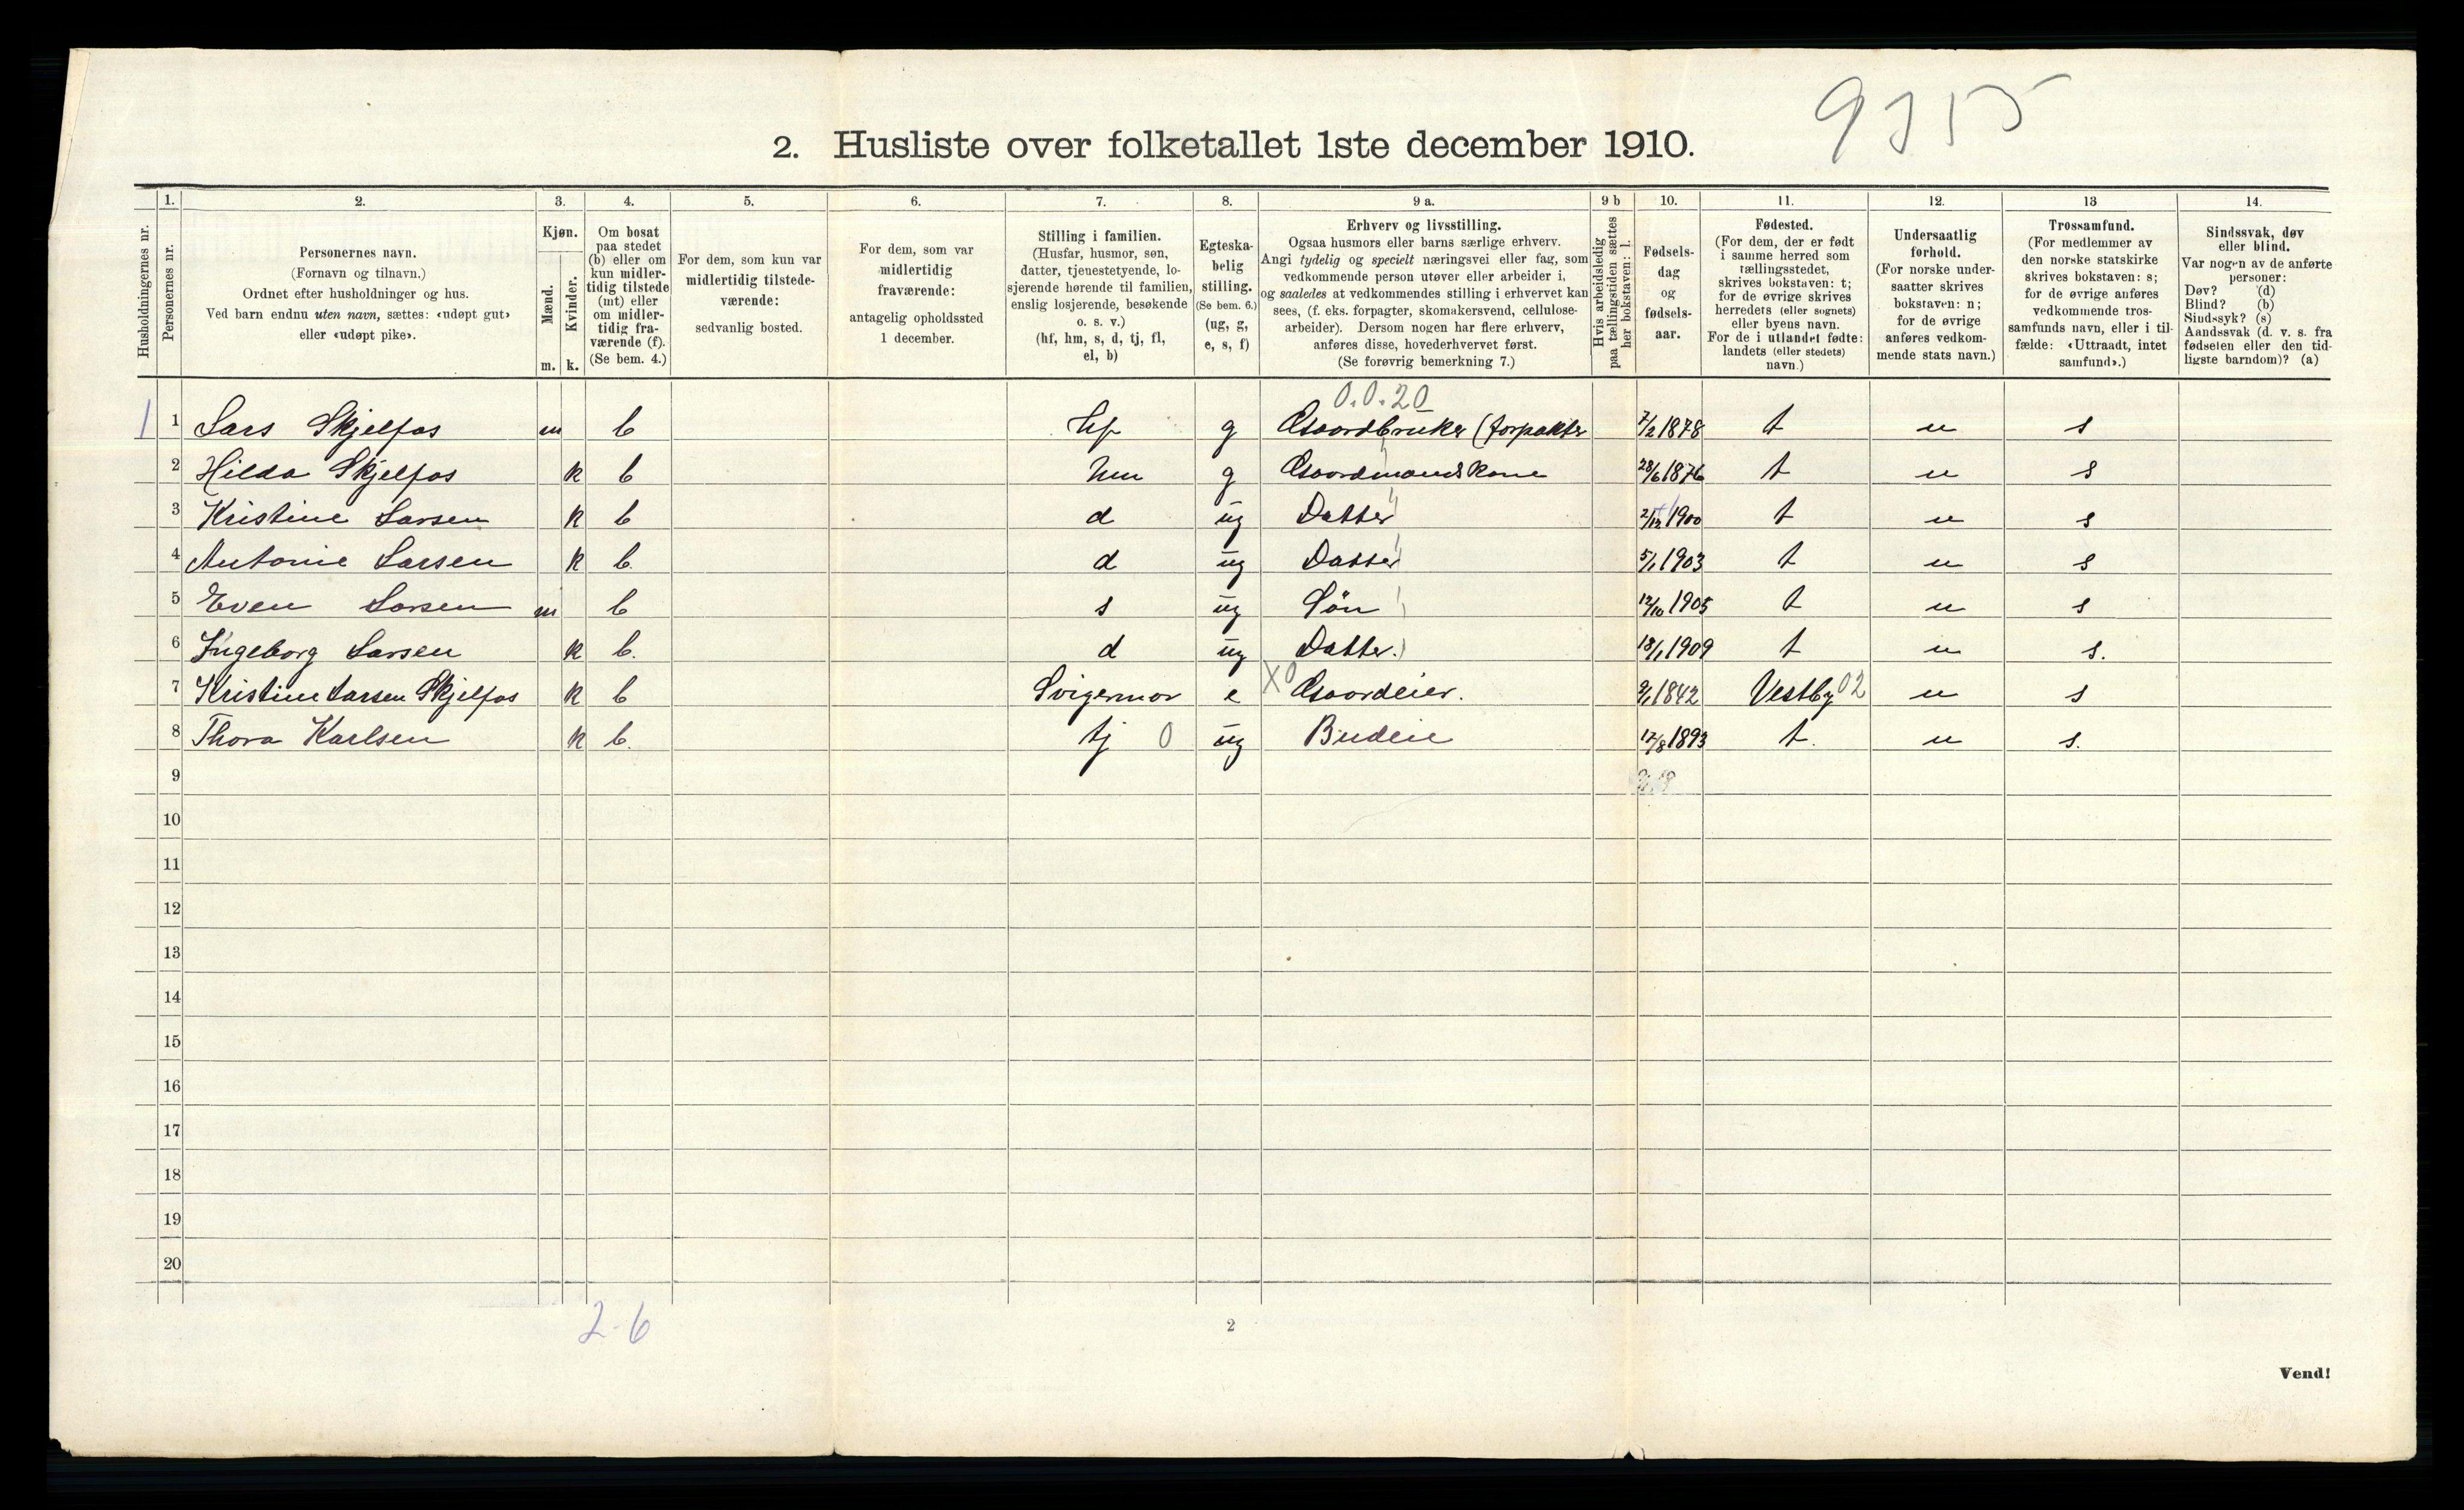 9315
2. Husliste over folketallet 1ste december 1910.
Husholdningernes nr.
1.
Personernes nr.
2.
Personernes navn.
(Fornavn og tilnavn.)
Ordnet efter husholdninger og hus.
Ved barn endnu uten navn, sættes: «udøpt gut»
eller «udøpt pike».
3.
Kjøn.
Mænd.
Kvinder.
m. k.
4.
Om bosat
paa stedet
(b) eller om
kun midler-
tidig tilstede
(mt) eller
om midler-
tidig fra-
værende (f).
(Se bem. 4.)
5.
For dem, som kun var
midlertidig tilstede-
værende:
sedvanlig bosted.
6.
For dem, som var
midlertidig
fraværende:
antagelig opholdssted
1 december.
7.
Stilling i familien.
(Husfar, husmor, søn,
datter, tjenestetyende, lo-
sjerende hørende til familien,
enslig losjerende, besøkende
o. s. v.)
(hf, hm, s, d, tj, fl,
el, b)
8.
Egteska-
belig
stilling.
(Se bem. 6.)
(ug, g,
e, s, f)
9 a.
Erhverv og livsstilling.
Ogsaa husmors eller barns særlige erhverv.
Angi tydelig og specielt næringsvei eller fag, som
vedkommende person utøver eller arbeider i,
og saaledes at vedkommendes stilling i erhvervet kan
sees, (f. eks. forpagter, skomakersvend, cellulose-
arbeider). Dersom nogen har flere erhverv,
anføres disse, hovederhvervet først.
(Se forøvrig bemerkning 7.)
9 b
Hvis arbeidsledig
paa tællingstiden sættes
her bokstaven: l.
10.
Fødsels-
dag
og
fødsels-
aar.
11.
Fødested.
(For dem, der er født
i samme herred som
tællingsstedet,
skrives bokstaven: t;
for de øvrige skrives
herredets (eller sognets)
eller byens navn.
For de i utlandet fødte:
landets (eller stedets)
navn.)
12.
Undersaatlig
forhold.
(For norske under-
saatter skrives
bokstaven: n;
for de øvrige
anføres vedkom-
mende stats navn.)
13
Trossamfund.
(For medlemmer av
den norske statskirke
skrives bokstaven: s;
for de øvrige anføres
vedkommende tros-
samfunds navn, eller i til-
fælde: «Uttraadt, intet
samfund».)
14.
Sindssvak, døv
eller blind.
Var nogen av de anførte
personer:
Døv? (d)
Blind? (b)
Sindssyk? (s)
Aandssvak (d. v. s. fra
fødselen eller den tid-
ligste barndom)? (a)
0.0.20
1 1 Lars Skjelfos m b hf g Gaardbruker (forpakter 7/2 1878 t n s
2 Hilda Skjelfos k b hm g Gaardmandskone 28/6 1876 t n s
3 Kristine Larsen k b d ug Datter 2/12 1900 t n s
4 Antonie Larsen k b. d ug Datter 5/1 1903 t n s
5 Even Larsen m b s ug Søn 12/10 1905 t n s
6 Ingeborg Larsen k b. d ug Datter. 18/1 1909 t n s.
7 Kristine Larsen Skjelfos k b Svigermor e X0 Gaardeier. 9/1 1842 Vestby 02 n s
8 Thora Karlsen k b. tj 0 ug Budeie 17/8 1893 t. n s.
9
10
11
12
13
14
15
16
17
18
19
20
2-6
2
Vend!